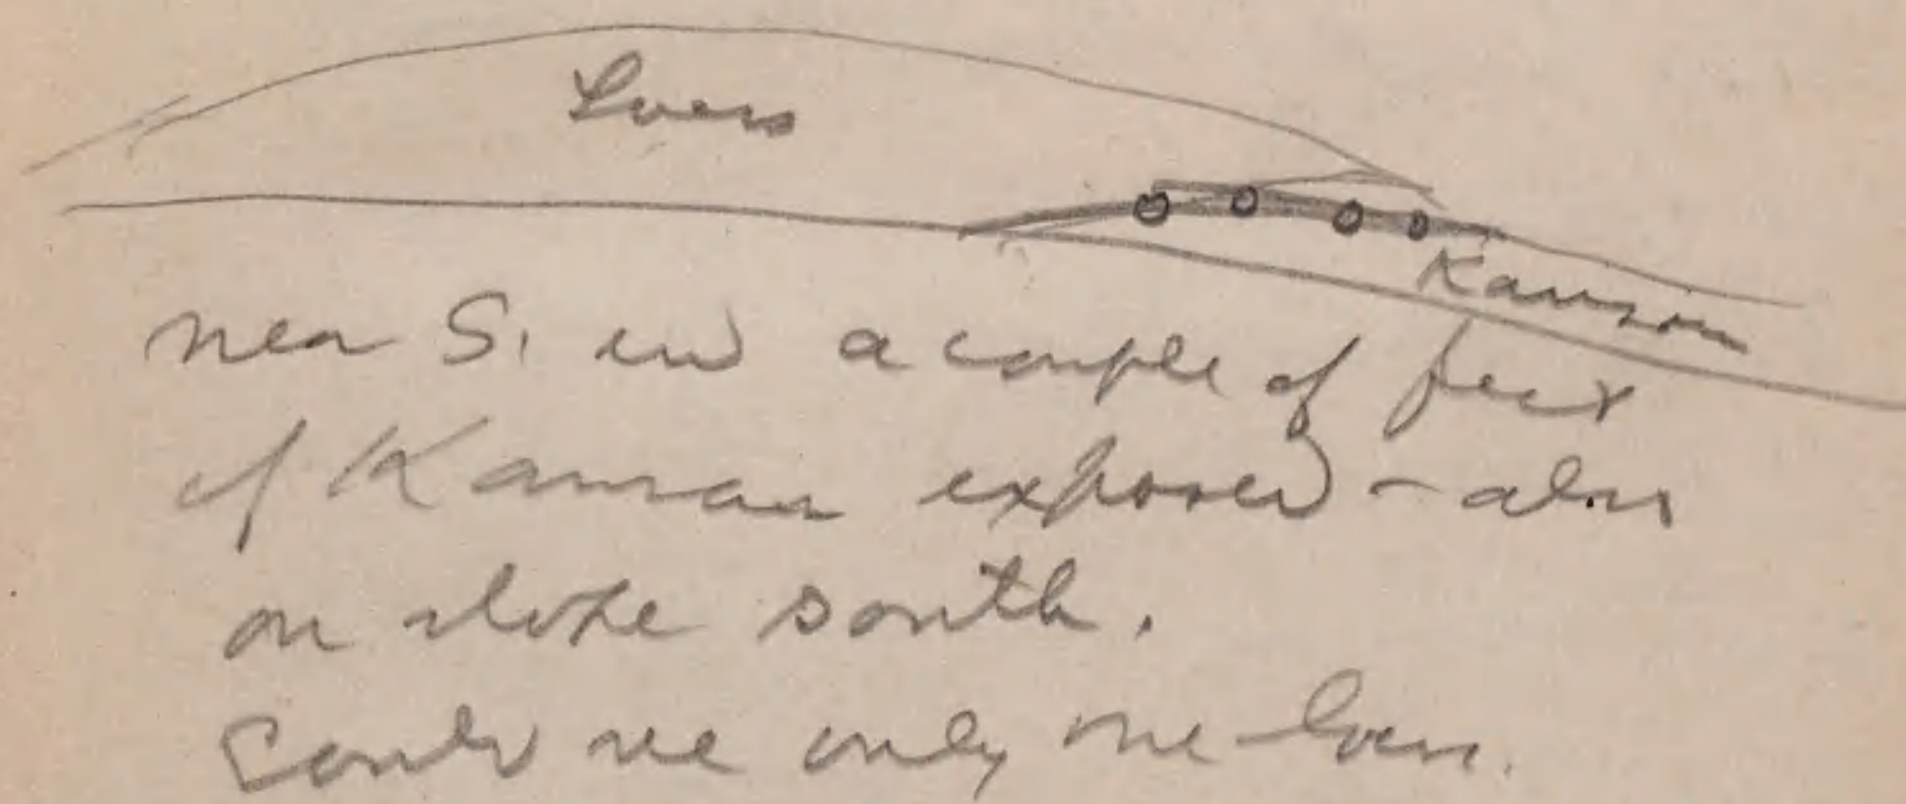 Loess
Kansan
near S. end a couple of feet
of Kansan exposed - also
on slope south.
Could see only one loess.